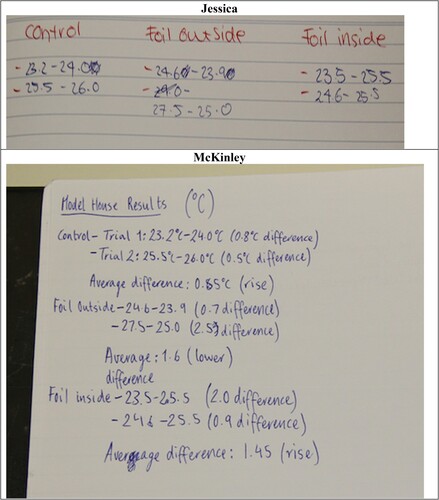 Jessica
Control Foil outside Foil inside
- 23.2 - 24.0 - 24.6 - 23.9 - 23.5 - 25.5
- 25.5 - 26.0 - 24.0 - - 24.6 - 25.5
27.5 - 25.0
McKinley
Model House Results (°C)
Control - Trial 1: 23.2°C - 24.0°C (0.8°C difference)
- Trial 2: 25.5°C - 26.0°C (0.5°C difference)
Average difference: 0.65°C (rise)
Foil Outside - 24.6 - 23.9 (0.7 difference)
- 27.5 - 25.0 (2.5 difference)
Average: 1.6 (lower)
difference
Foil inside - 23.5 - 25.5 (2.0 difference)
- 24.6 - 25.5 (0.9 difference)
Average difference: 1.45 (rise)